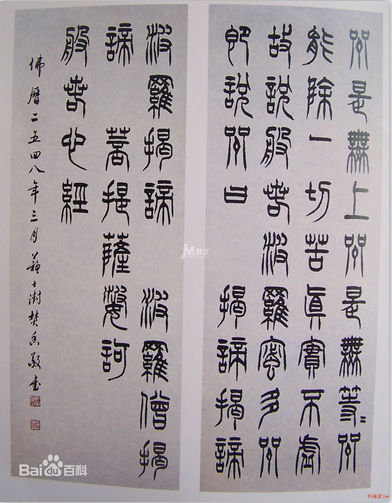 呪是無上呪是無等〻呪
能除一切苦眞實不虛
故說般若波羅蜜多呪
即說呪曰 揭諦揭諦
波羅揭諦 波羅僧揭
諦 菩提薩婆訶
般若心經
佛曆二五四八年三月蘇士澍焚香敬書
Bai度百科